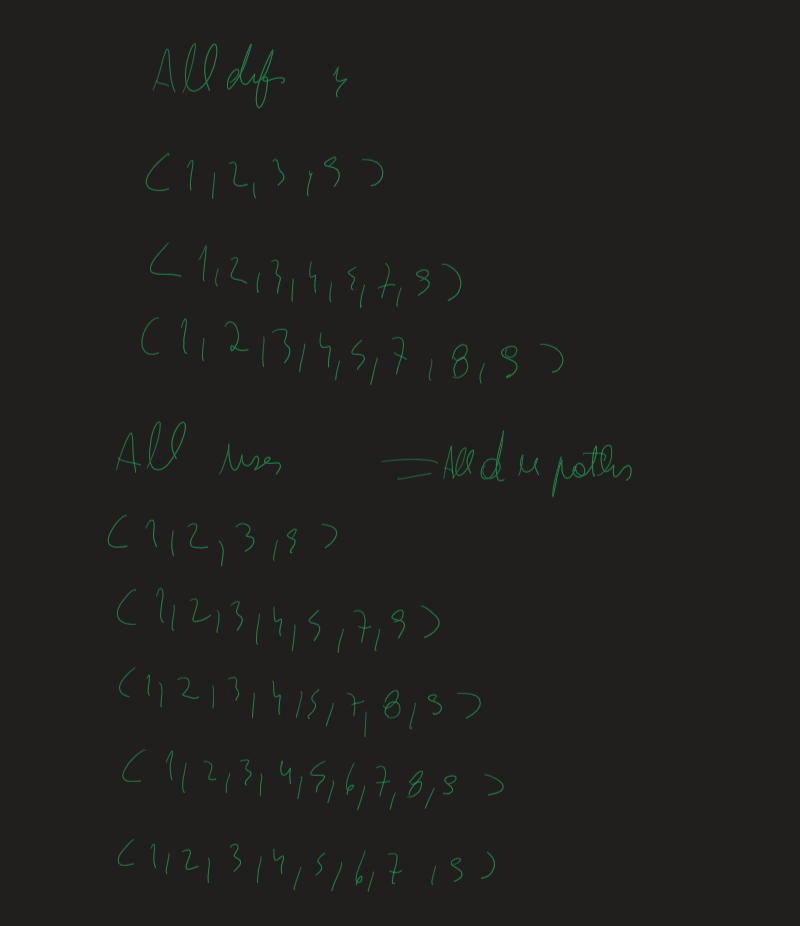 All defs
(1,2,3,9)
(1,2,3,4,5,7,9)
(1,2,3,4,5,7,8,9)
All uses = All du paths
(1,2,3,9)
(1,2,3,4,5,7,9)
(1,2,3,4,5,7,8,9)
(1,2,3,4,5,6,7,8,9)
(1,2,3,4,5,6,7,9)